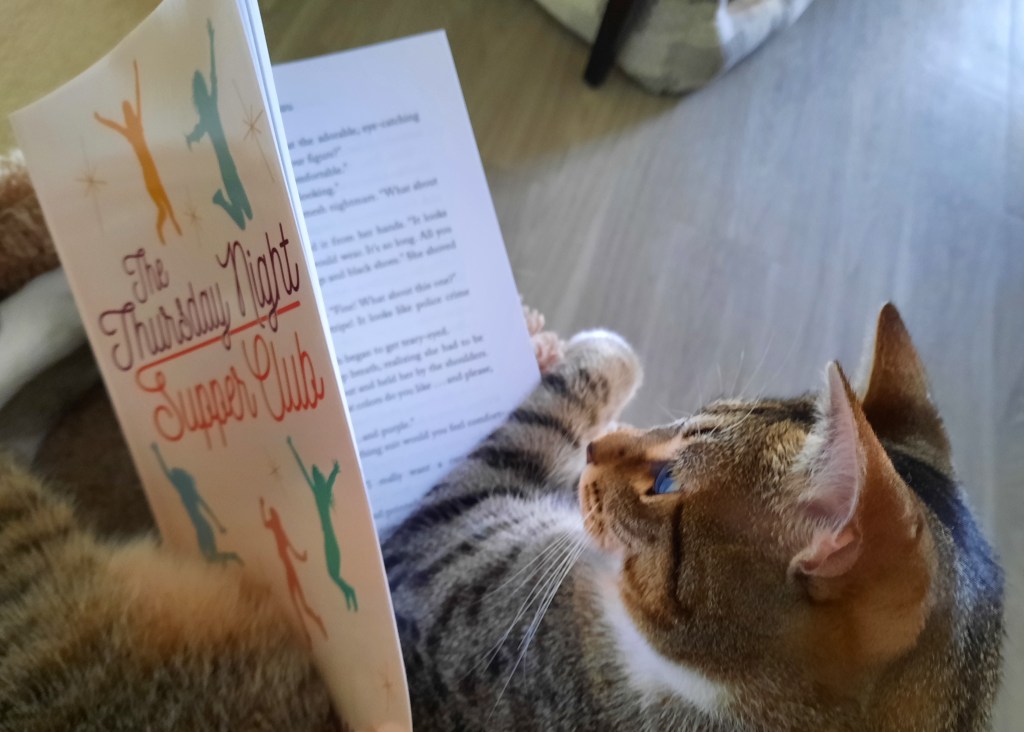 The
Thursday Night
Supper Club
the adorable, eye-catching
figure?"
"What about
is from her hands. "It looks
would wear. It's so long. All you
and black shoes." She shoved
"Fine! What about this one?"
It looks like police crime
began to get teary-eyed.
breath, realizing she had to be
and held her by the shoulders.
colors do you like ... and please,
and purple."
would you feel
really want a